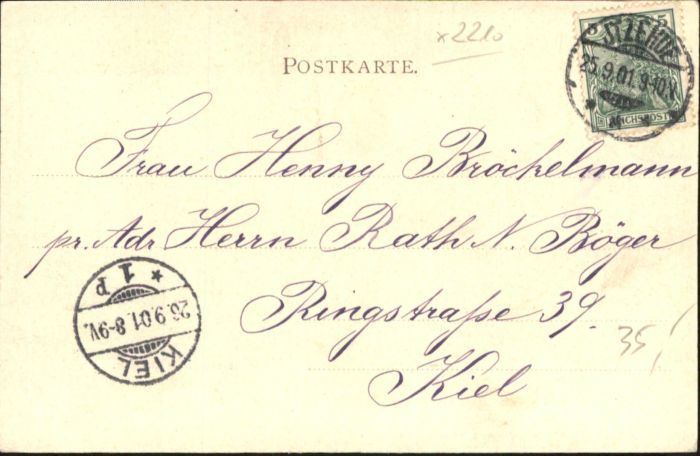 x2210
POSTKARTE.
5 5
ITZEHOE
25.9.01.9-10V.
REICHSPOST
Frau Henny Bröckelmann
pr. Adr Herrn Rath N. Böger
Ringstraße 39.
Kiel
35,
KIEL
26.9.01.8-9V.
* 1 P